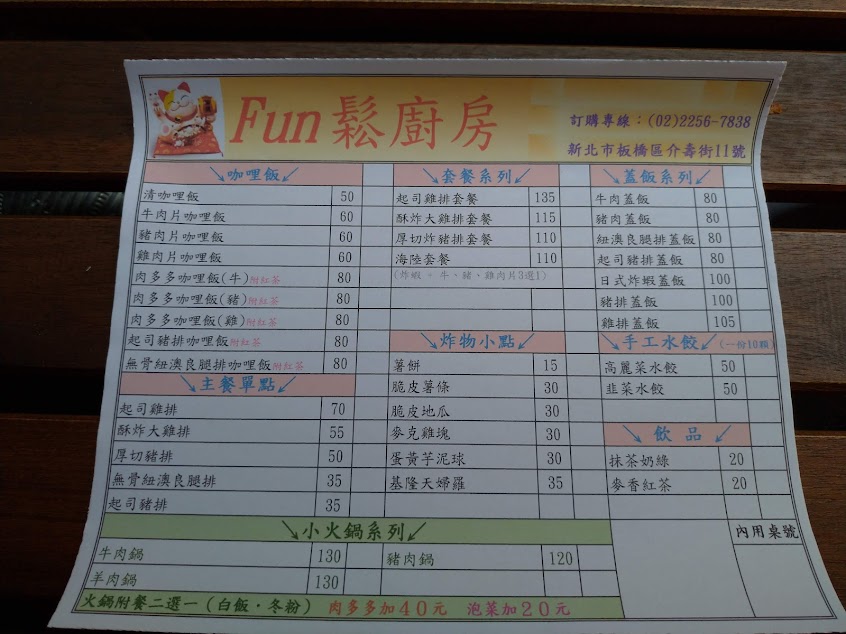 Fun鬆廚房
訂購專線：(02)2256-7838
新北市板橋區介壽街11號
↘咖哩飯↙
清咖哩飯 50
牛肉片咖哩飯 60
豬肉片咖哩飯 60
雞肉片咖哩飯 60
肉多多咖哩飯(牛)附紅茶 80
肉多多咖哩飯(豬)附紅茶 80
肉多多咖哩飯(雞)附紅茶 80
起司豬排咖哩飯附紅茶 80
無骨紐澳良腿排咖哩飯附紅茶 80
↘主餐單點↙
起司雞排 70
酥炸大雞排 55
厚切豬排 50
無骨紐澳良腿排 35
起司豬排 35
↘套餐系列↙
起司雞排套餐 135
酥炸大雞排套餐 115
厚切炸豬排套餐 110
海陸套餐 110
(炸蝦。牛、豬、雞肉片3選1)
↘炸物小點↙
薯餅 15
脆皮薯條 30
脆皮地瓜 30
麥克雞塊 30
蛋黃芋泥球 30
基隆天婦羅 35
↘蓋飯系列↙
牛肉蓋飯 80
豬肉蓋飯 80
紐澳良腿排蓋飯 80
起司豬排蓋飯 80
日式炸蝦蓋飯 100
豬排蓋飯 100
雞排蓋飯 105
↘手工水餃↙(一份10顆)
高麗菜水餃 50
韭菜水餃 50
↘飲品↙
抹茶奶綠 20
麥香紅茶 20
↘小火鍋系列↙
牛肉鍋 130
豬肉鍋 120
羊肉鍋 130
火鍋附餐二選一(白飯·冬粉) 肉多多加40元 泡菜加20元
內用桌號